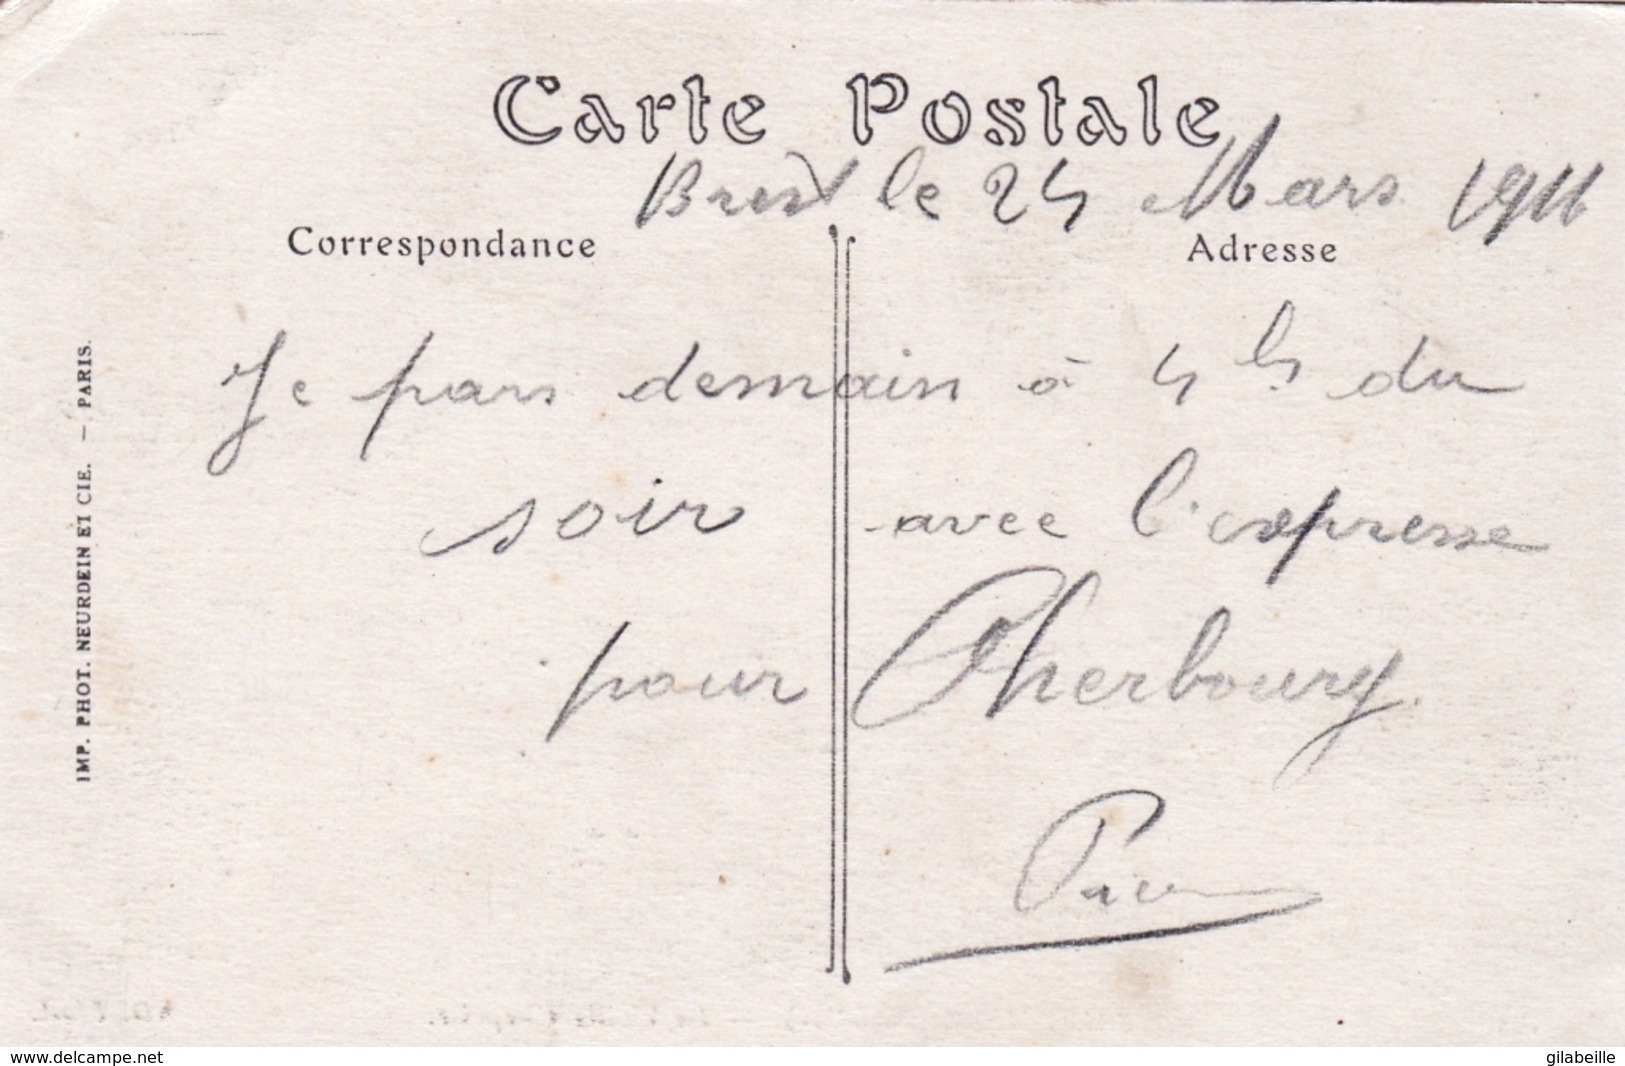 Carte Postale
Brest le 24 Mars
Correspondance
Adresse
Je pars demain à 4 h du
soir avec l'expresse
pour Cherbourg.
IMP. PHOT. NEURDEIN ET CIE. — PARIS.
www.delcampe.net
gilabeille